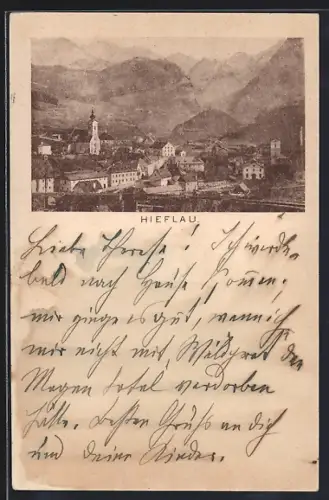 HIEFLAU.
Liebe Therese! Ich werde
bald nach Hause kommen,
mir ginge es gut, wenn ich
mir nicht mit Wildpret den
Magen total verdorben
hätte. Besten Gruß an dich
und deine Kinder.